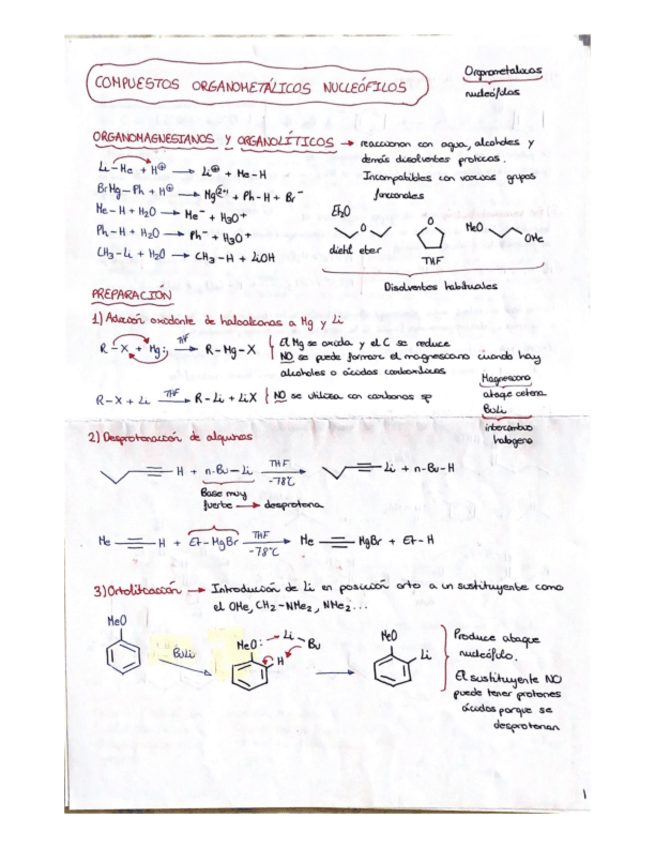 COMPUESTOS ORGANOMETÁLICOS NUCLEÓFILOS
Organometalicos
nucleófilos
ORGANOMAGNESIANOS Y ORGANOLÍTICOS → reaccionan con agua, alcoholes y
demás disolventes proticos.
Incompatibles con varios grupos
funcionales
Li-Me + H⊕ → Li⊕ + Me-H
BrMg-Ph + H⊕ → Mg2+ + Ph-H + Br⁻
Me-H + H2O → Me⁻ + H3O⁺
Ph-H + H2O → Ph⁻ + H3O⁺
CH3-Li + H2O → CH3-H + LiOH
Et2O
O
dietil eter
O
THF
MeO
OMe
Disolventes habituales
PREPARACIÓN
1) Adición oxidante de haloalcanos a Mg y Li
R-X + Mg: THF → R-Mg-X
El Mg se oxida y el C se reduce
NO se puede formar el magnesiano cuando hay
alcoholes o ácidos carboxílicos
R-X + Li THF → R-Li + LiX NO se utiliza con carbonos sp
Magnesiano
ataque cetona
BuLi
intercambio
halogeno
2) Desprotonación de alquinos
H + n-Bu-Li THF -78ºC → Li + n-Bu-H
Base muy
fuerte → desprotona
Me H + Et-MgBr THF -78ºC → Me MgBr + Et-H
3) Ortolitiación → Introducción de Li en posición orto a un sustituyente como
el OMe, CH2-NMe2, NMe2...
MeO
BuLi
MeO: Li Bu
H
MeO
Li
Produce ataque
nucleófilo.
El sustituyente NO
puede tener protones
ácidos porque se
desprotonan
1